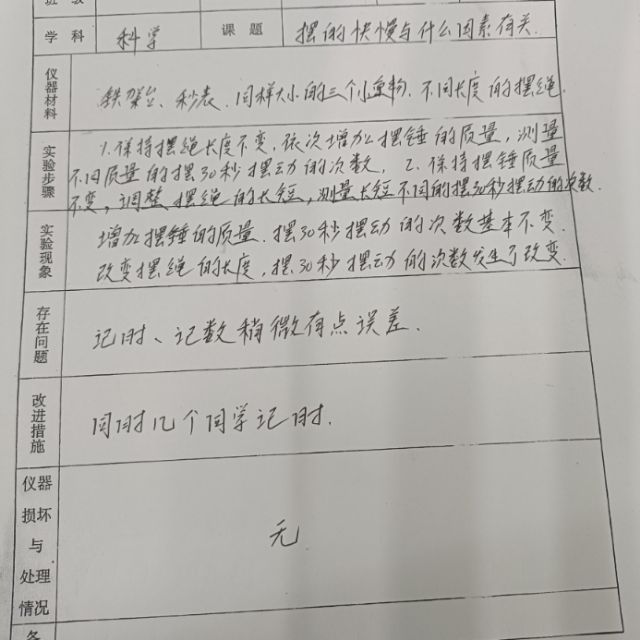 班 级
学 科 科学 课 题 摆的快慢与什么因素有关.
仪器材料 铁架台、秒表、同样大小的三个小重物、不同长度的摆绳.
实验步骤 1.保持摆绳长度不变,依次增加摆锤的质量,测量
不同质量的摆30秒摆动的次数, 2.保持摆锤质量
不变,调整摆绳的长短,测量长短不同的摆30秒摆动的次数.
实验现象 增加摆锤的质量.摆30秒摆动的次数基本不变.
改变摆绳的长度,摆30秒摆动的次数发生了改变.
存在问题 记时、记数稍微有点误差.
改进措施 同时几个同学记时.
仪器
损坏
与 无
处理
情况